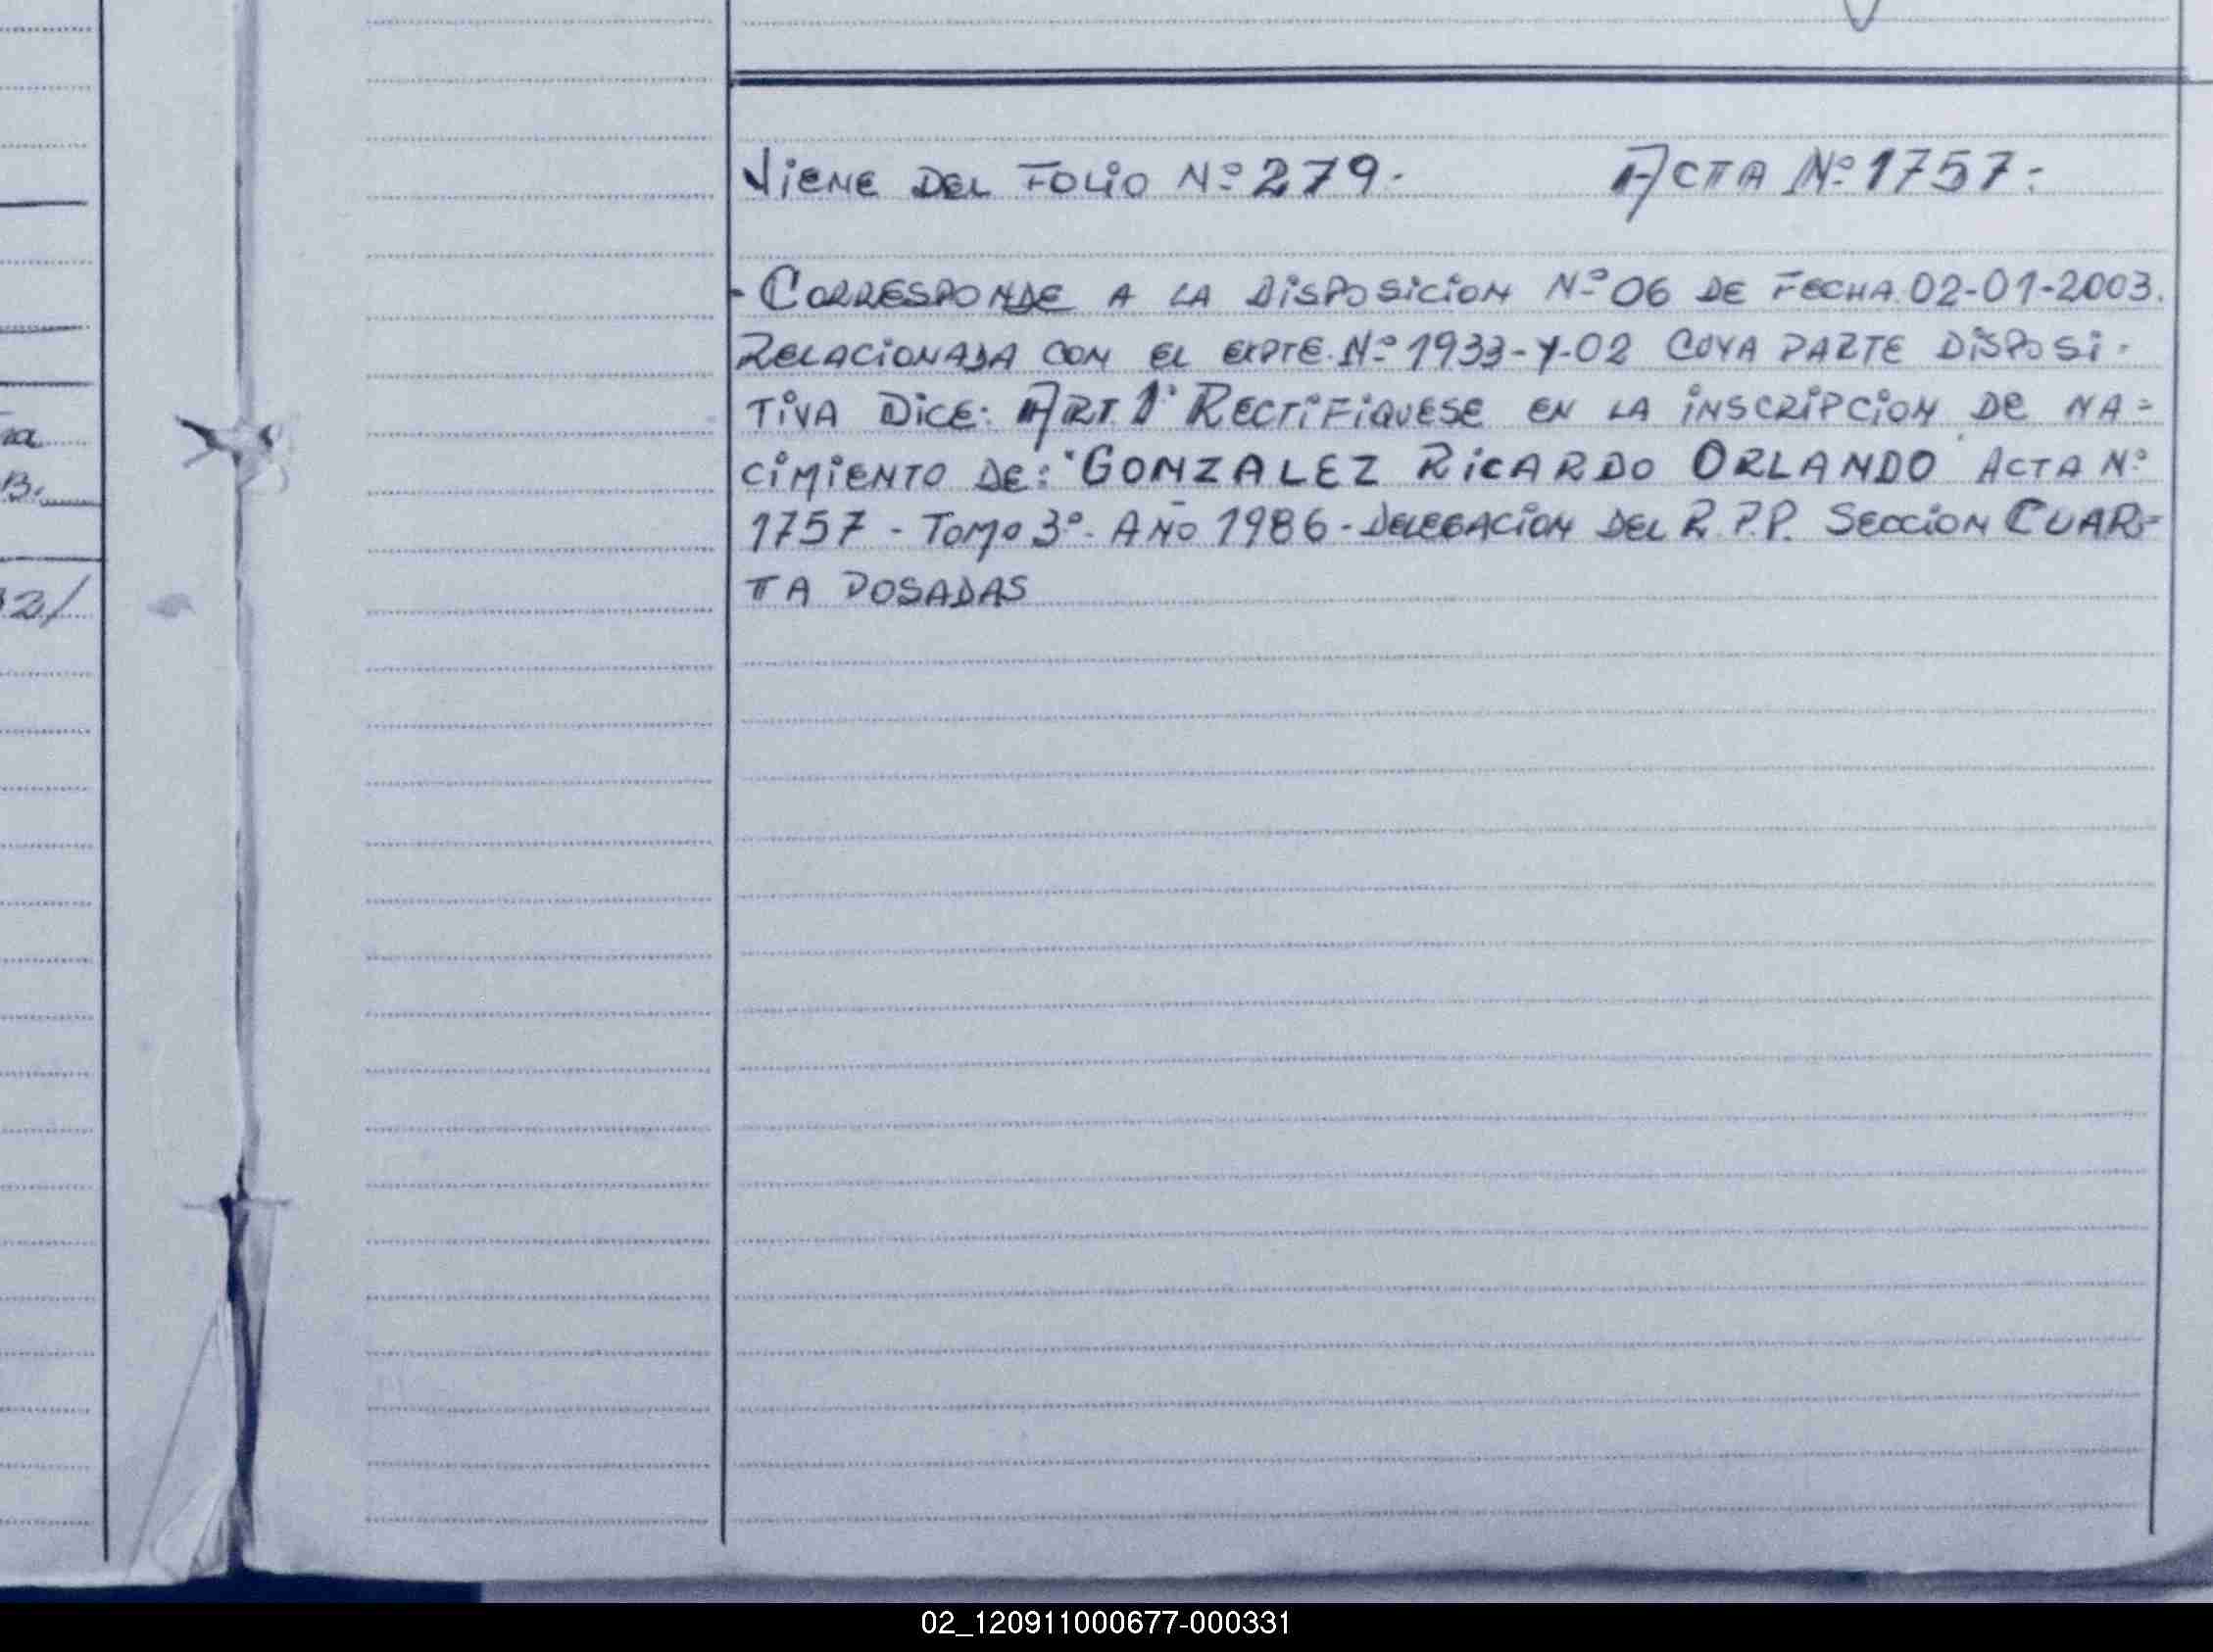 ra
B.
2/
Viene del Folio Nº 279.- Acta Nº 1757:
- Corresponde a la Disposicion Nº 06 de fecha 02-01-2003.
Relacionada con el expte. Nº 1933-Y-02 cuya parte disposi-
tiva dice: Art. 1º Rectifiquese en la inscripcion de na-
cimiento de: "GONZALEZ RICARDO ORLANDO" Acta Nº
1757 - Tomo 3º - Año 1986 - Delegacion del R.P.P. Seccion Cuar-
ta Posadas
02_120911000677-000331